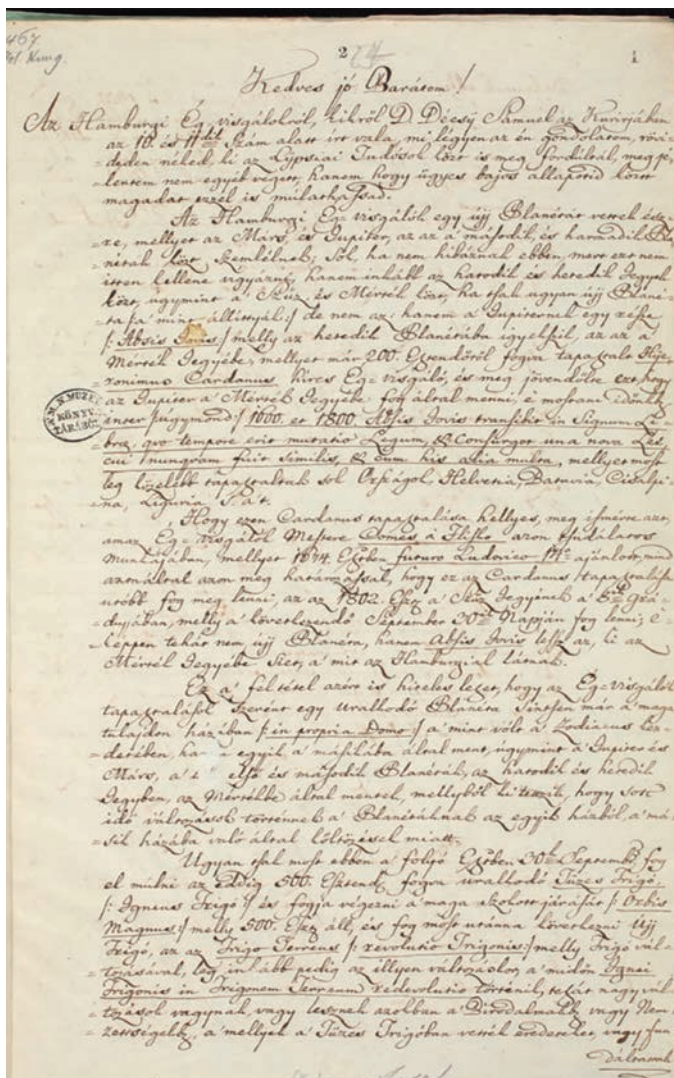 467
Fol. Hung.
2
1
Kedves jó Barátom!
Az Hamburgi Ég-visgálókról, kikről D. Décsy Sámuel az Kurirjában
az 10. és 11dik Szám alatt írt vala, mi légyen az én gondolatom, rövi-
=deden néked, ki az Lypsiai Tudósok közt is meg fordúltál, meg je-
=lentem nem egyéb végett, hanem hogy ügyes bajos állapotid között
magadat ezzel is múlathassad.
Az Hamburgi Ég-visgálók egy újj Blanétát vettek ész-
=re, mellyet az Márs, és Jupiter, az az a' második, és harmadik Bla-
=néták közt szemlélnek; Sőt, ha nem hibáznak ebben, mert ezt nem
itten kellene vigyázni, hanem inkább az hatodik és hetedik Jegyek
közt, úgymint a' Szűz és Mérték közt, ha tsak ugyan újj Blané-
=ta /:a' mint állíttyák:/ de nem az: hanem a' Jupiternek egy része
/: Absis Jovis :/ melly az hetedik Blanétába igyekszik, az az a'
Mérték Jegyébe, mellyet már 200. Esztendőtől fogva tapasztalt Hije-
=ronimus Cardanus, híres Ég-visgáló, és meg jövendölte ezt, hogy
az Jupiter a' Mérték Jegyébe fog által menni, e' mostani időnkben
inter /:úgymond:/ 1600. et 1800. Absis Jovis transibit in Signum Li-
=brae, quo tempore erit mutatio Legum, & Consurget una nova Lex
cui nunquam fuit similis, & cum his alia multa, mellyet most
leg közelebb tapasztaltak sok Országok, Helvetia, Batavia, Cisalpi-
=na, Liguria, 's a' t.
Hogy ezen Cardanus tapasztalása hellyes, meg ismérte azt,
amaz Ég-visgálók Mestere Comes à Flisko azon tsudálatos
Munkájában, mellyet 1674. Eszben futuro Ludovico ajánlott, mind
azonáltal azon meg határozással, hogy ez az Cardanus tapasztalása
utóbb fog meg lenni, az az 1802. Esz a' Szűz Jegyének a' 8dik Grá-
=dusában, melly a' következendő September 30dik Napján fog lenni; é-
=képpen tehát nem újj Blanéta, hanem Absis Jovis lessz az, ki az
Mérték Jegyébe siet, a' mit az Hamburgiak látnak.
Ez a' fel tétel azért is hiteles lehet, hogy az Ég-visgálók
tapasztalások szerént egy Uralkodó Blanéta sintsen már a' maga
tulajdon házában /: in propria Domo :/ a' mint vólt a' Zodiacus kez-
=detében, egyik a' másikába által ment, úgymint a' Jupiter és
Márs, a' első és második Blanéták, az hatodik és hetedik
Jegyben, az Mértékbe által mentek, mellyből ki tetszik, hogy sok
idő változások történnek a' Blanétáknak az egyik házból, a' má-
=sik házába való által költözések miatt.
Ugyan tsak most ebben a' folyó Eszben 30dik Septemb. fog
el múlni az eddig 500. Esztend. fogva uralkodó Tüzes Trigó,
/: Igneus Trigó :/ és fogja végezni a' maga szokott járását /: Orbis
Magnus :/ melly 500. Esz áll, és fog most utánna következni Újj
Trigó, az az Trigo Terreus /: revolutio Trigonis :/ melly Trigó vál-
=tozásával, leg inkább pedig az illyen változáskor, a' midőn Ignei
Trigonis in Trigonem Terreum revolutio történik, tehát nagy vál-
=tozások vagynak, vagy lesznek azokban a' Birodalmakb. vagy Nem-
=zettségekb., a' mellyek a' Tüzes Trigóban vették eredeteket, vagy fun
dáltattak
M. N. MUZEUM
KÖNYV-
TÁRÁBÓL